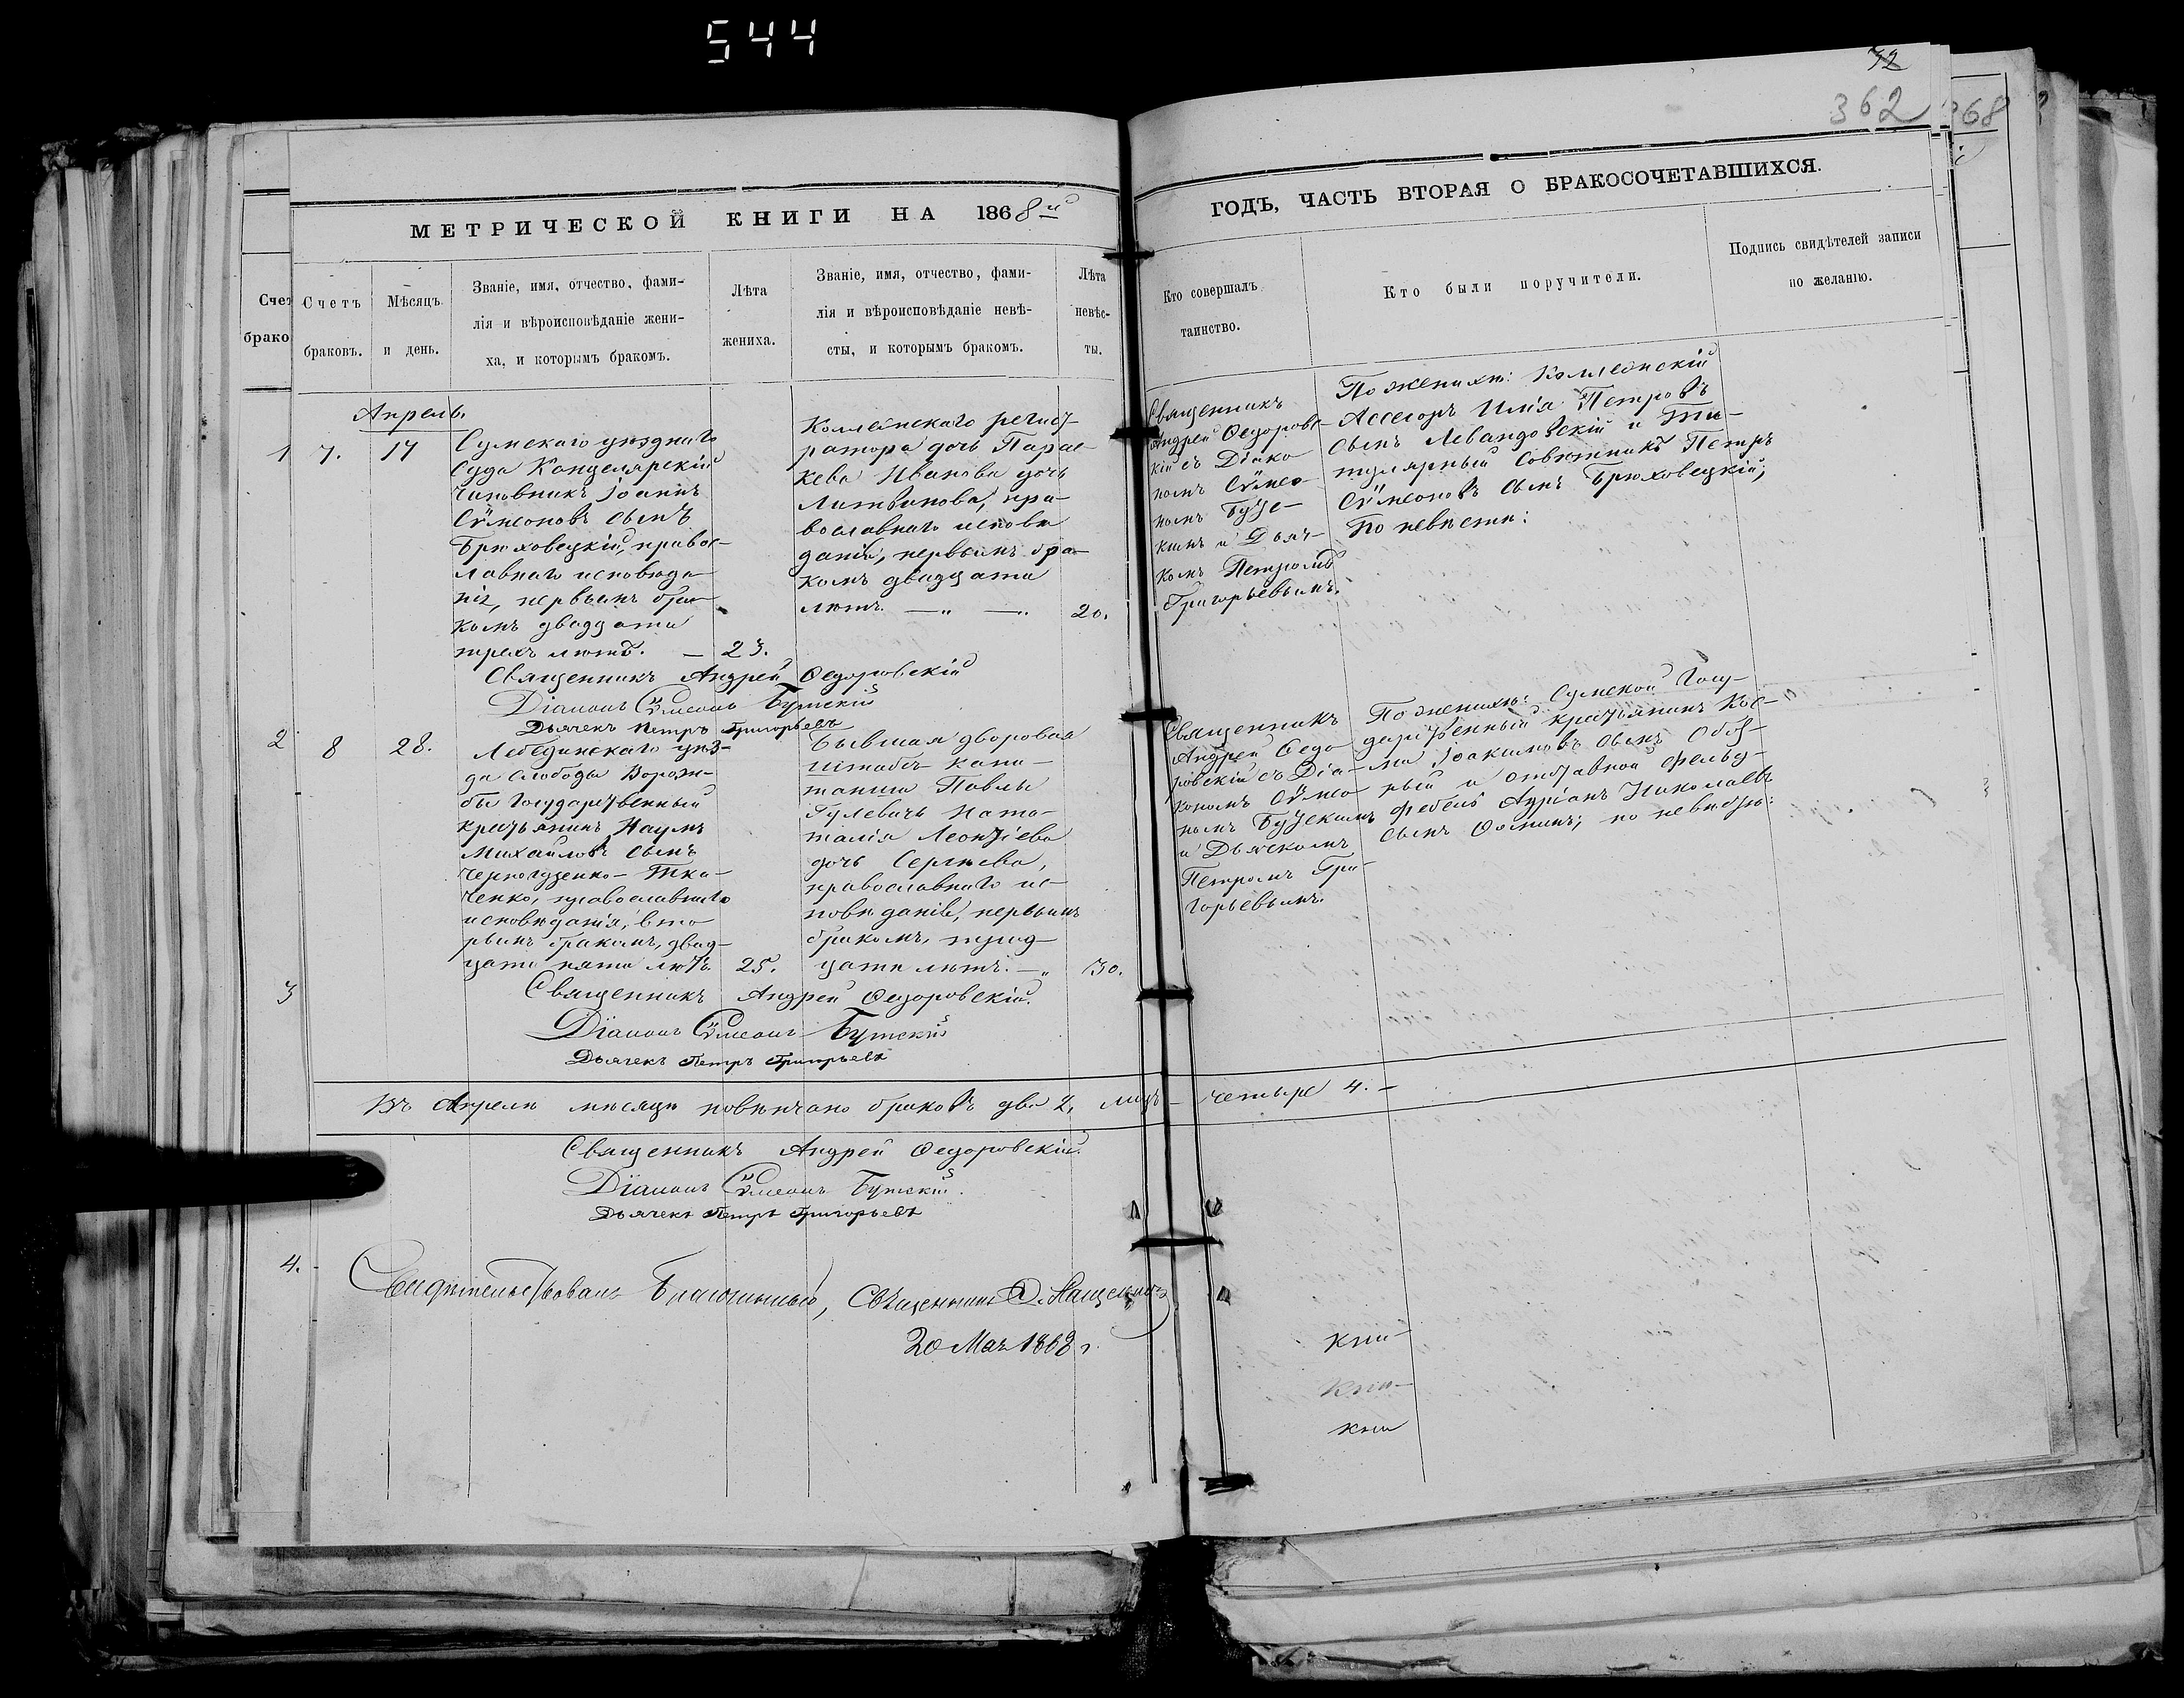 544
32
362
368
МЕТРИЧЕСКОЙ КНИГИ НА 1868й
ГОДЪ, ЧАСТЬ ВТОРАЯ О БРАКОСОЧЕТАВШИХСЯ.
Счет
брако
Счетъ
браковъ.
Мѣсяцъ
и день.
Званіе, имя, отчество, фами-
лія и вѣроисповѣданіе жени-
ха, и которымъ бракомъ.
Лѣта
жениха.
Званіе, имя, отчество, фами-
лія и вѣроисповѣданіе невѣ-
сты, и которымъ бракомъ.
Лѣта
невѣс-
ты.
Кто совершалъ
таинство.
Кто были поручители.
Подпись свидѣтелей записи
по желанію.
Апрель
1
7.
17
Сумскаго уѣзднаго
Суда Канцелярскій
чиновникъ Іоаннъ
Сѵмеоновъ сынъ
Брюховецкій, правос-
лавнаго исповѣда-
нія, первымъ бра-
комъ двадцати
трехъ лѣтъ. — 23.
Коллежскаго регист-
ратора дочь Парас-
кева Иванова дочь
Литвинова, пра-
вославнаго исповѣ
данія, первымъ бра-
комъ двадцати
лѣтъ. —„ —„ 20.
Священникъ
Андрей Ѳедоровс-
кій съ Діако
номъ Сѵмео-
номъ Бут-
кимъ и Дьяч-
комъ Петромъ
Григорьевымъ.
По женихѣ: Коллежскій
Ассесоръ Илія Петровъ
сынъ Левандовскій и Ти-
тулярный Совѣтникъ Петръ
Сѵмеоновъ сынъ Брюховецкій;
По невѣстѣ:
Священникъ Андрей Ѳедоровскій
Діаконъ Сѵмеонъ Бутскій
Дьячекъ Петръ Григорьевъ
2
8
28.
Лебединскаго уѣз-
да слободы Ворож-
бы Государственный
крестьянинъ Наумъ
Михайловъ сынъ
Черногузенко-Тка-
ченко, православнаго
исповѣданія, вто
рымъ бракомъ, двад-
цати пяти лѣтъ. 25.
Бывшая дворовая
штабсъ капи-
танши Павлы
Гулевичъ Ната-
талія Леонтіева
дочь Сергѣева,
православнаго ис-
повѣданія, первымъ
бракомъ, трид-
цати лѣтъ. —„ 30.
Священникъ
Андрей Ѳедо
ровскій съ Діа-
кономъ Сѵмео
номъ Бутскимъ
и Дьячкомъ
Петромъ Гри-
горьевымъ.
По женихѣ: Сумской Госу-
дарственный крестьянинъ Кос-
ма Іоакимовъ сынъ
и отставной фельд-
фебель Адріанъ Николаевъ
сынъ Ѳоминъ; по невѣстѣ:
3
Священникъ Андрей Ѳедоровскій.
Діаконъ Сѵмеонъ Бутскій
Дьячекъ Петръ Григорьевъ
Въ Апрелѣ мѣсяцѣ повѣнчано браковъ два 2, лицъ — четыре 4. —
Священникъ Андрей Ѳедоровскій.
Діаконъ Сѵмеонъ Бутскій.
Дьячекъ Петръ Григорьевъ
4.
Свидѣтельствовалъ Благочинный, Священникъ
20 Мая 1868 г.
кни-
кни-
кни